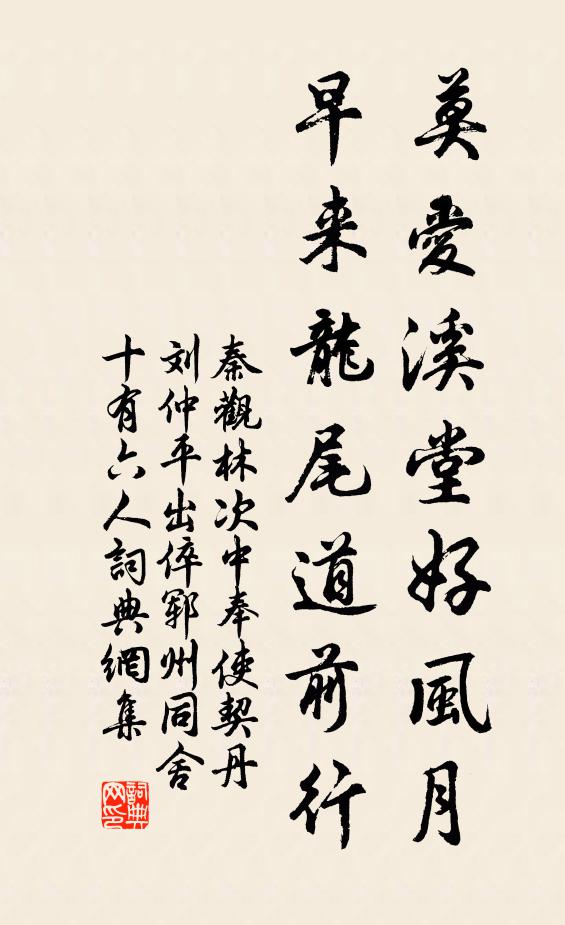 莫愛溪堂好風月
早来龍尾道前行
秦觀林次中奉使契丹
刘仲平出倅鄆州同舍
十有六人詞典網集
詞典网印